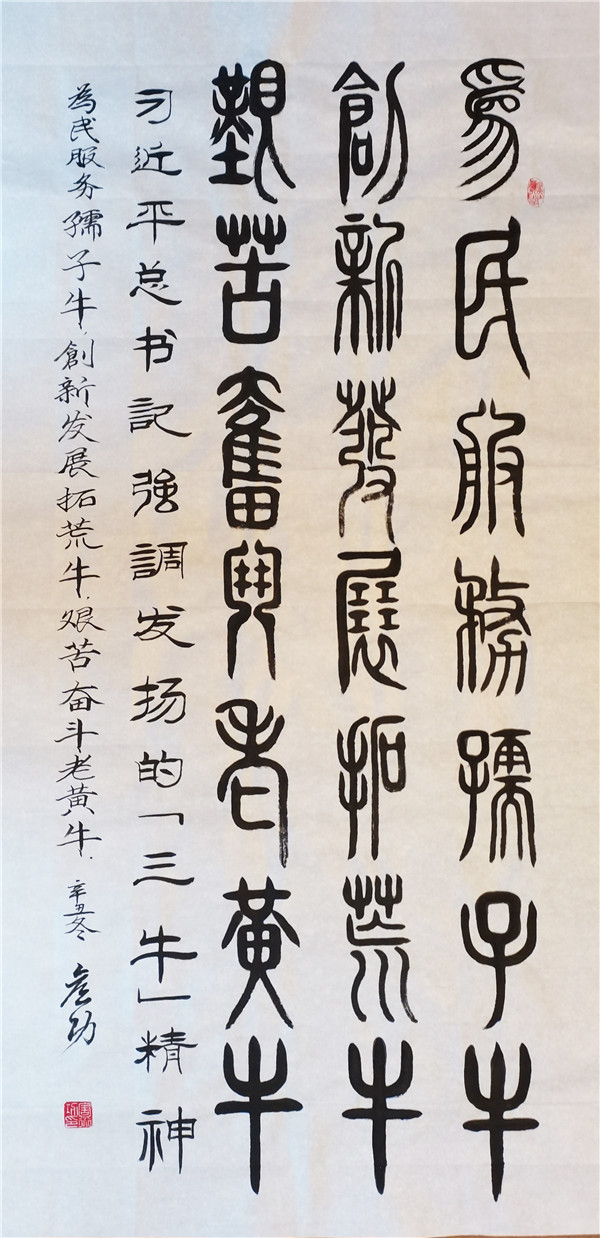 為民服務孺子牛
創新發展拓荒牛
艱苦奮鬥老黃牛
习近平总书記强調发扬的「三牛」精神
為民服务孺子牛.創新发展拓荒牛.艰苦奋斗老黄牛.辛丑冬